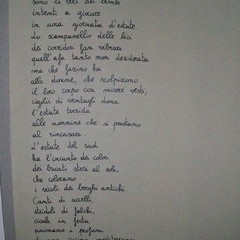 sono le voci dei bimbi
intenti a giocare
in una giornata d'estate.
Lo scampanellio delle bici
dei corridori fan vibrare
quell'afa tanto non desiderata
ma che fascino ha
alle donne, che scolpiscono
il loro corpo con misere vesti,
vogliosi di ventagli dona
l'estate torrida
alle nonnine che si prestano
al rincasare.
L'estate del sud
ha l'incanto dei colori
dei bucati stesi al sole,
che colorano
i vicoli dei borghi antichi.
Canti di uccelli,
stridoli di falchi,
cicale in festa
animano i profumi
di una